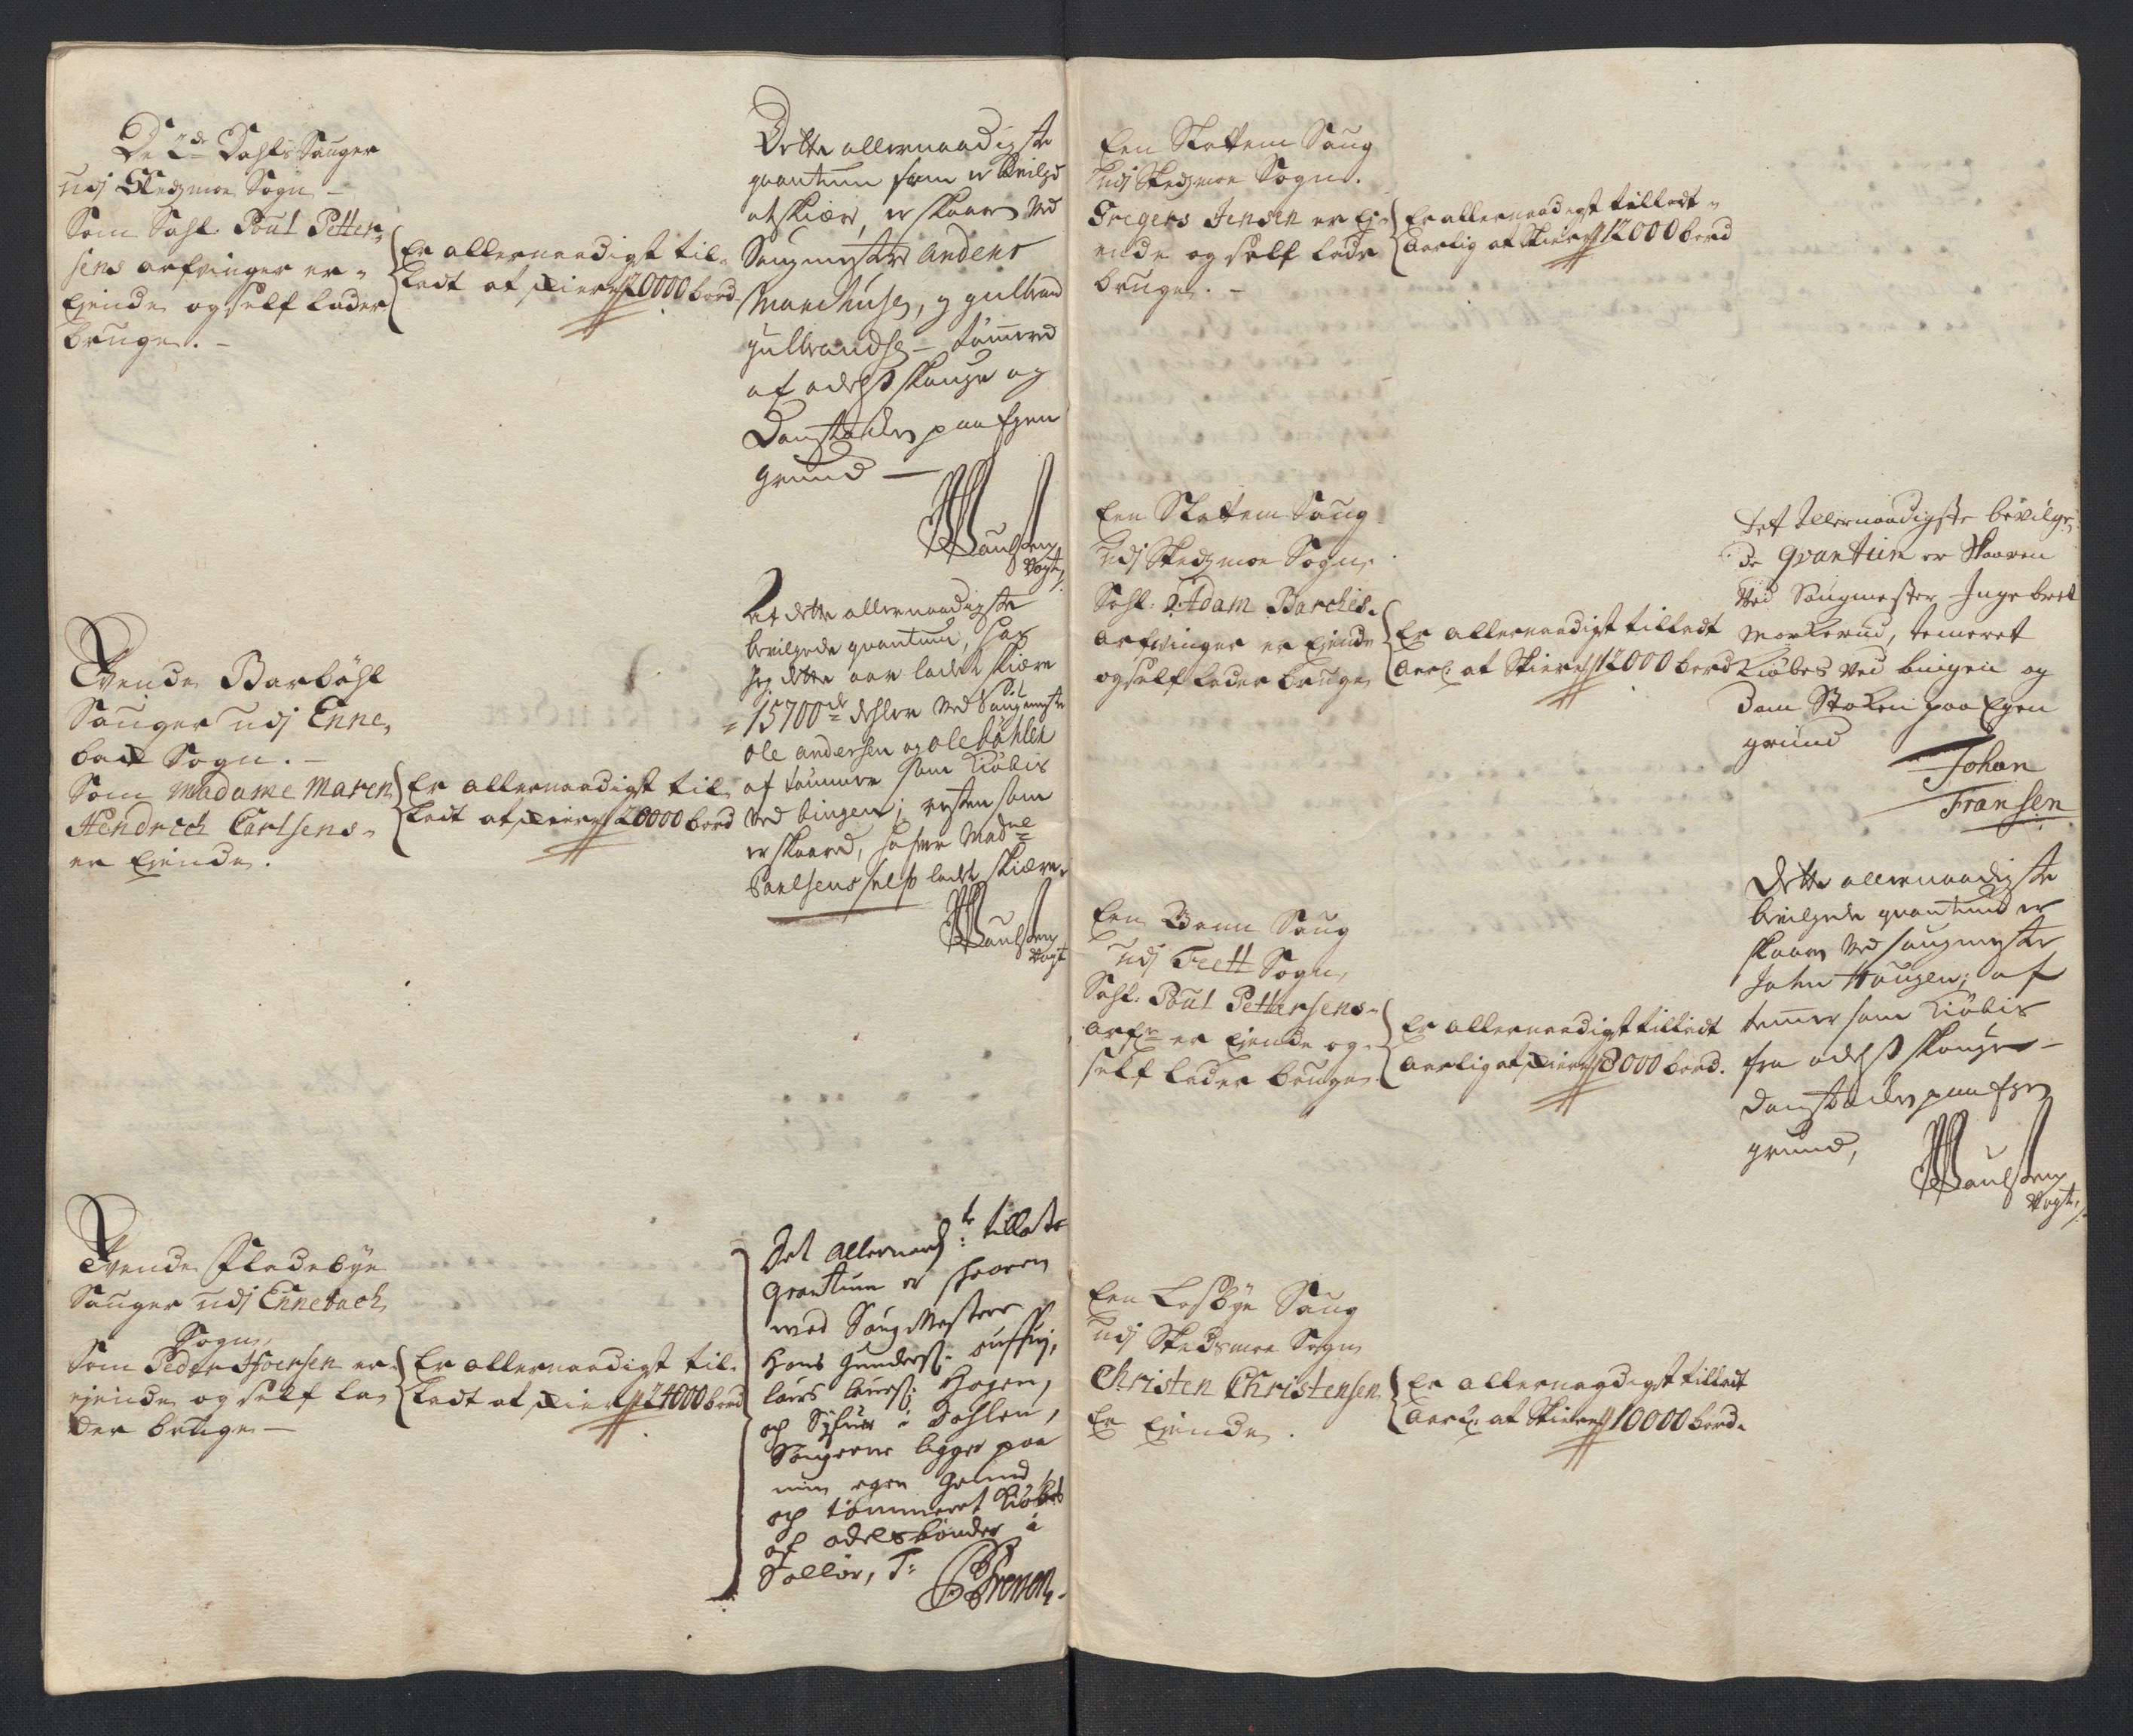 De 2de Dahls Sauger
udj Skedzmoe Sogn –
Som Sahl. Poul Petter-
sens arfvinger er
Ejende og self lader
bruge. –
Er allernaadigst til-
ladt at skiere 20000 bord
Dette allernaadigste
qvantum som er bevilgd
at skiær, er skaaren ved
Saugmester Anders
og gulbrand
gulbrandsen – tømmerd
af odelss skouge og
Damstocken paa Egen
grund –
Paulsen
Vogt
Tvende Barbøhl
Sauger udj Enne-
bach Sogn. –
Som Madame Maren
Hendrich Carlsens
er Ejende.
Er allernaadigst til-
ladt at skiere 20000 bord
Af dette allernaadigste
bevilgede qvantum, har
Jeg dette aar ladet skiære
15700de dehler ved Saugmester
Ole Andersen og Ole bøhler
af tømmer som kiøbis
ved bingen; resten som
er skaared, hafver Madme
Carlsens self ladet skiære.
Paulsen
Vogt
Tvende Fladebye
Sauger udj Ennebach
Sogn,
Som Peder Iffversen er
ejende og self la-
der bruge –
Er allernaadigst til-
ladt at skiere 24000 bord
Det allernaad: te tillatte
qvantum er skaaren
med Saug Mestere
Hans Gunders:
lars lars: Hagen,
och i Dahlen,
Saugerne ligger paa
min egen Grund
och tømmeret kiøbes
af odelsbønder i
Sollør,
Een Stattem Saug
udj Skedzmoe Sogn.
Tregers Jensen er Ej-
ende og self lader
bruge. –
Er allernaadigst tilladt
Aarlig at Skiere 12000 bord
Een Stattem Saug
udj Skedzmoe Sogn,
Sahl. Adam Barchis
arfvinger er Ejende
og self lader bruge
Er allernaadigst tilladt
Aarl: at Skiere 12000 bord
Det Allernaadigste bevilge-
de qvantum er skaaren
ved Saugmester Ingebret
Morkerud, temeret
Kiøbes ved bingen og
Dam Stoken paa Egen
grund
Johan
Fransen
Een Vann Saug
udj Feett Sogn,
Sahl. Poul Pettersens
Arfr er Ejende og
self lader bruge
Er allernaadigst tilladt
Aarlig at skiere 8000 bord.
Dette allernaadigste
bevilgede qvantum er
skaaren ved Saugmester
John Haugen; af
temer som kiøbis
fra odelss skouge –
Damstocken paa Egen
grund,
Paulsen
Vogt
Een Losbye Saug
udj Skedsmoe Sogn
Christen Christensen
Er Ejende.
Er allernaadigst tilladt
Aarl: at Skiere 10000 bord.